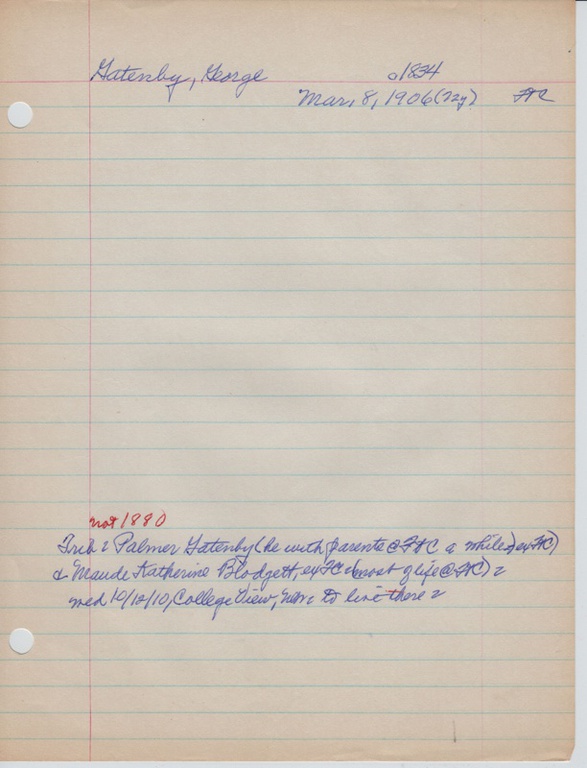 Gatenby, George 1834
Mar, 8, 1906 (72y) FTC
not 1880
Trib: Palmer Gatenby (he with parents @ FTC a while) ex FTC)
& Maude Katherine Blodgett, ex FTC (most of life @ FTC)
wed 10/10/10, College View, Nebr. to live there